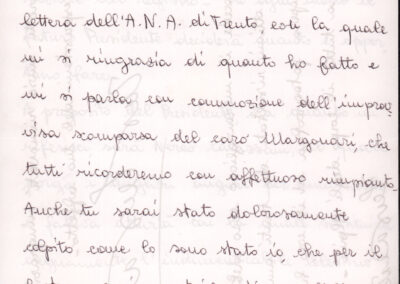 lettera dell'A.N.A. di Trento, con la quale
mi si ringrazia di quanto ho fatto e
mi si parla con commozione dell'improv-
visa scomparsa del caro Margonari, che
tutti ricorderemo con affettuoso rimpianto.
Anche tu sarai stato dolorosamente
colpito, come lo sono stato io, che per il